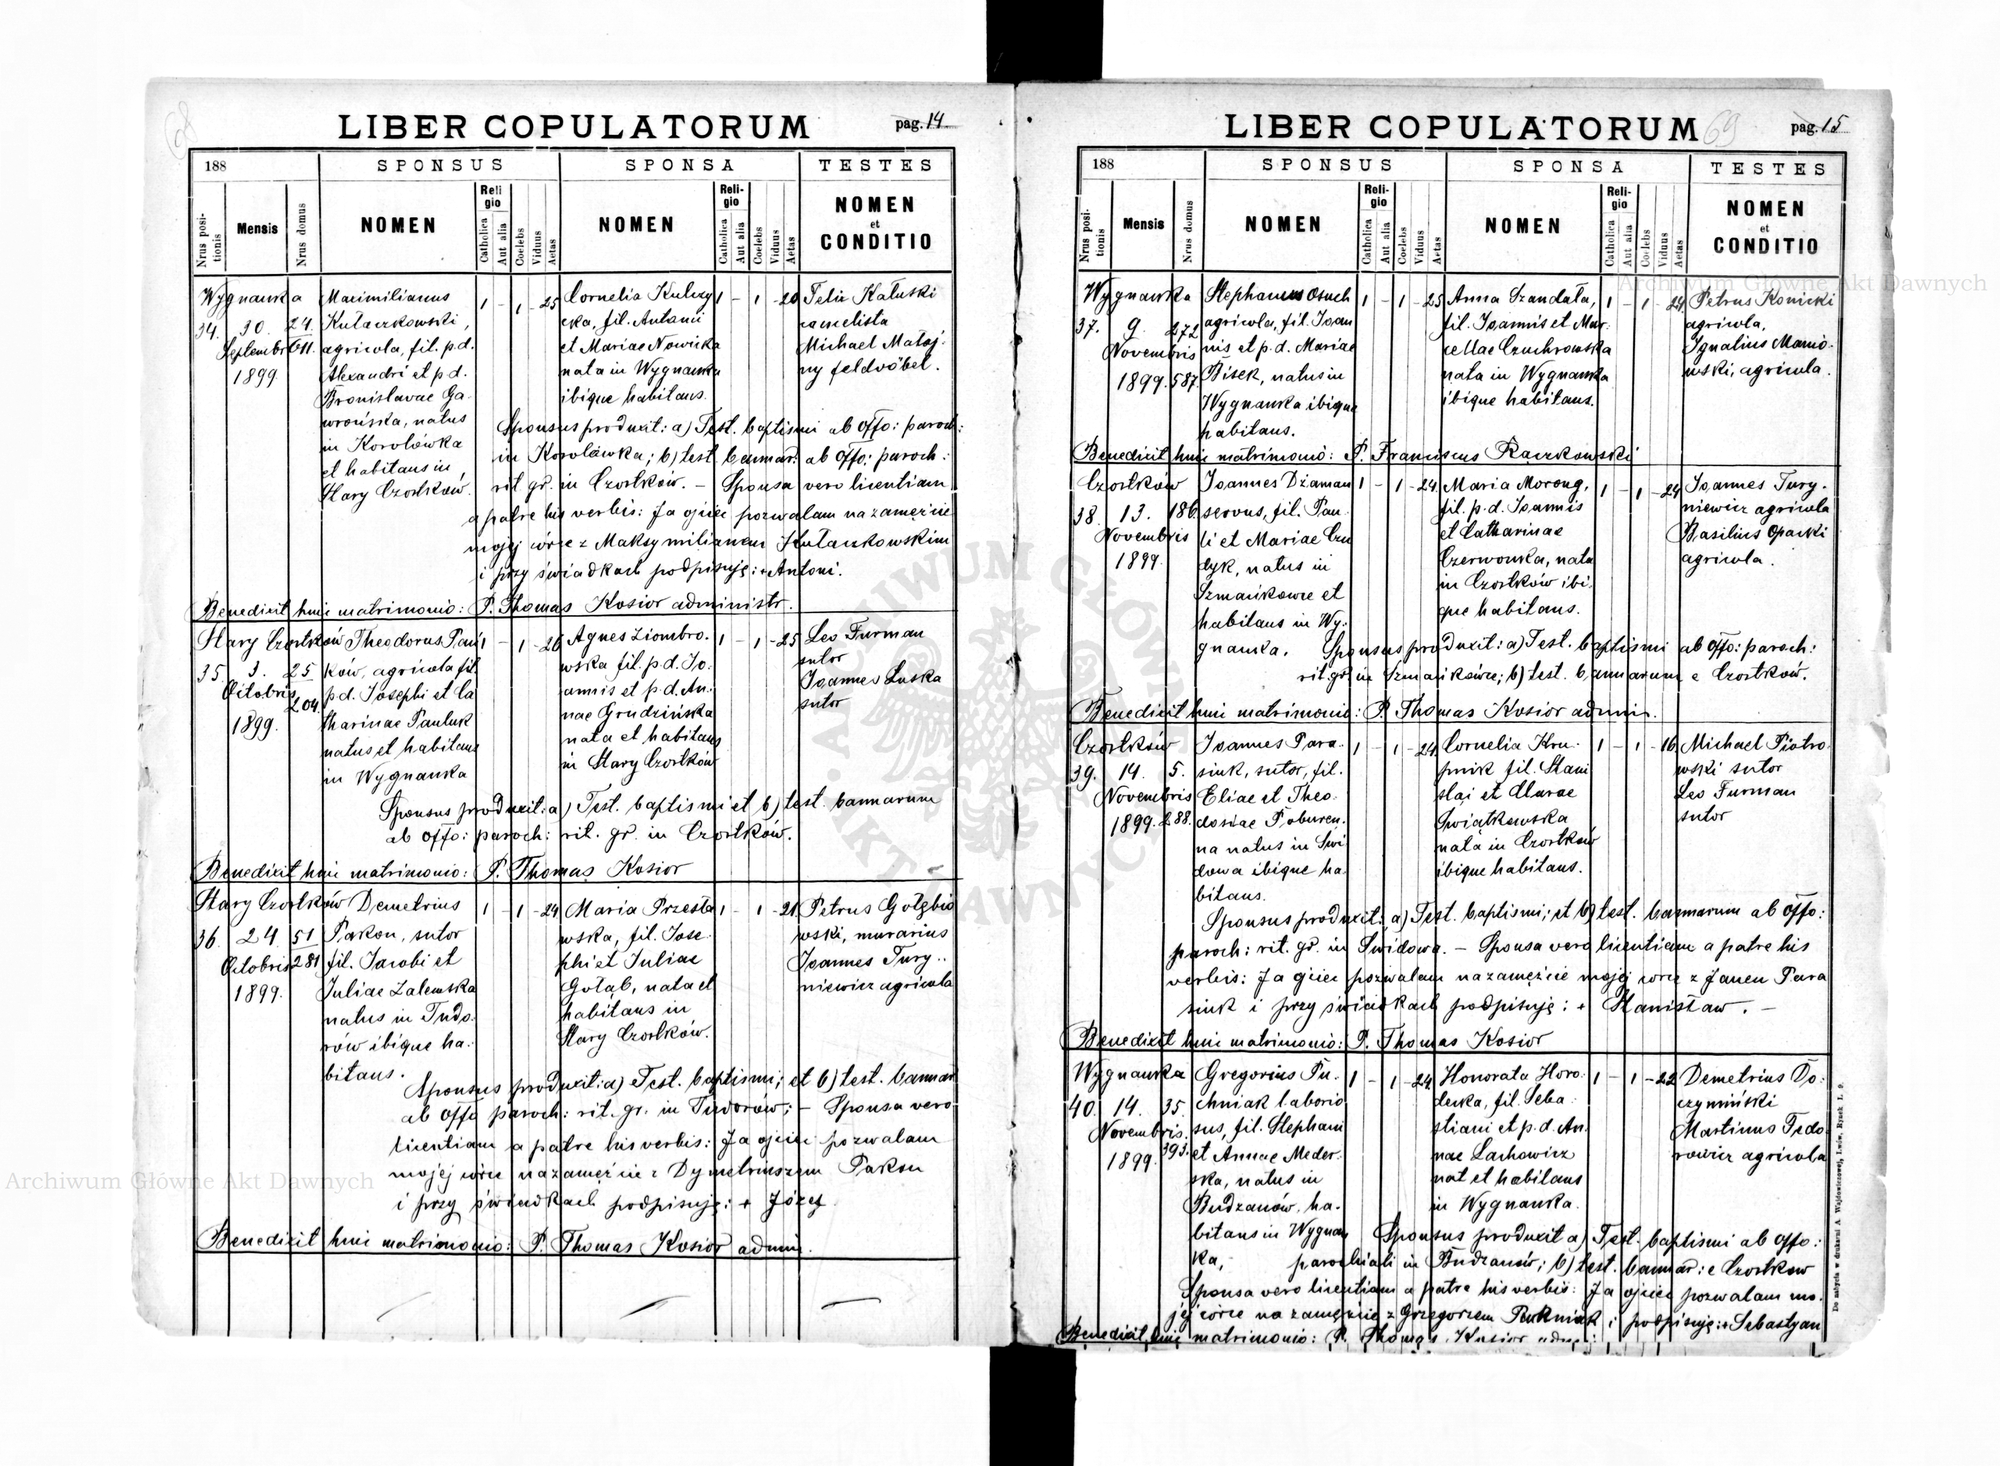 68
LIBER COPULATORUM
pag. 14
188
SPONSUS
SPONSA
TESTES
Nrus positionis
Mensis
Nrus domus
NOMEN
Religio
Catholica
Aut alia
Coelebs
Viduus
Aetas
NOMEN
Religio
Catholica
Aut alia
Coelebs
Viduus
Aetas
NOMEN
et
CONDITIO
Wygnanka
34. 30. 24.
Septembris 611.
1899.
Maximilianus
Kułaczkowski,
agricola, fil. p.d.
Alexandri et p.d.
Bronislavae Ga-
wrońska, natus
in Korolówka
et habitans in
Stary Czortków.
1 - 1 - 25
Cornelia Kulczy
cka, fil. Antonii
et Mariae Nowicka
nata in Wygnanka
ibique habitans.
1 - 1 - 20
Felix Kałuski
Michael Matoj-
ny feldvöbel.
Sponsus produxit: a) Test. baptismi ab offo: paroch:
in Korolówka; b) test. bannar: ab offo: paroch:
rit gr. in Czortków. — Sponsa vero licentiam
a patre his verbis: Ja ojciec pozwalam na zamęźcie
mojej córce z Maksymilianem Kułaczkowskim
i przy świadkach podpisuję: + Antoni.
Benedixit huic matrimonio: P. Thomas Kosior administr.
Stary Czortków
35. 3. 25
Octobris 204.
1899.
Theodorus Pań
ków, agricola fil
p.d. Josephi et Ca
tharinae Pauluk
natus et habitans
in Wygnanka
1 - 1 - 26
Agnes Ziombro-
wska fil. p.d. Jo-
annis et p.d. An-
nae Grudzińska
nata et habitans
in Stary Czortków
1 - 1 - 25
Leo Furman
sutor
Joannes Luska
sutor
Sponsus produxit: a) Test. baptismi et b) test. bannarum
ab offo: paroch: rit. gr. in Czortków.
Benedixit huic matrimonio: P. Thomas Kosior
Stary Czortków
36. 24 51
Octobris 281
1899.
Demetrius
Pakon, sutor
fil. Jacobi et
Juliae Zalewska
natus in Tudo-
rów ibique ha-
bitans.
1 - 1 - 24
Maria Przesta
wska, fil. Jose-
phi et Juliae
Gołąb, nata et
habitans in
Stary Czortków.
1 - 1 - 21
Petrus Gołębio
wski, murarius
Joannes Tury-
niewicz agricola
Sponsus produxit: a) Test. baptismi; et b) test. bannar
ab offo paroch: rit. gr. in Tudorów; — Sponsa vero
licentiam a patre his verbis: Ja ojciec pozwalam
mojej córce na zamęźcie z Dymetriuszem Pakon
i przy świadkach podpisuję: + Józef
Benedixit huic matrimonio: P. Thomas Kosior admin.
LIBER COPULATORUM
69
pag. 15
188
SPONSUS
SPONSA
TESTES
Nrus positionis
Mensis
Nrus domus
NOMEN
Religio
Catholica
Aut alia
Coelebs
Viduus
Aetas
NOMEN
Religio
Catholica
Aut alia
Coelebs
Viduus
Aetas
NOMEN
et
CONDITIO
Wygnanka
37. 9. 272
Novembris
1899. 587.
Stephanus Osuch
agricola, fil. Joan
nis et p.d. Mariae
Bisek, natus in
Wygnanka ibique
habitans.
1 - 1 - 25
Anna Szandała,
fil. Joannis et Mar-
cellae Czuchrowska
nata in Wygnanka
ibique habitans.
1 - 1 - 24
Petrus Konicki
agricola,
Ignatius Manio-
wski, agricola.
Benedixit huic matrimonio: P. Franciscus Raczkowski
Czortków
38. 13. 186
Novembris
1899.
Joannes Dżaman
servus, fil. Pau-
li et Mariae Cru
dyk, natus in
Szmańkowce et
habitans in Wy-
gnanka.
1 - 1 - 24
Maria Moroug,
fil. p.d. Joannis
et Catharinae
Czerwonka, nata
in Czortków ibi-
que habitans.
1 - 1 - 24
Joannes Tury-
niewicz agricola
Basilius Opacki
agricola.
Sponsus produxit: a) Test. baptismi ab offo: paroch:
rit. gr. in Szmańkowce; b) test. bannarum e Czortków.
Benedixit huic matrimonio: P. Thomas Kosior admin.
Czortków
39. 14. 5.
Novembris
1899. 288.
Joannes Para-
siuk, sutor, fil.
Eliae et Theo-
dosiae Poburen-
na natus in Świ-
dowa ibique ha-
bitans.
1 - 1 - 24
Cornelia Kru-
pnik fil. Stani
slai et Clarae
Świątkowska
nata in Czortków
ibique habitans.
1 - 1 - 16
Michael Piotro-
wski sutor
Leo Furman
sutor
Sponsus produxit: a) Test. baptismi; et b) test. bannarum ab offo:
paroch: rit. gr. in Świdowa. — Sponsa vero licentiam a patre his
verbis: Ja ojciec pozwalam na zamęźcie mojej córce z Janem Para
siuk i przy świadkach podpisuję: + Stanisław. —
Benedixit huic matrimonio: P. Thomas Kosior
Wygnanka
40. 14. 35.
Novembris.
1899. 393.
Gregorius Pu-
chniak laborio
sus, fil. Stephani
et Annae Meder-
ska, natus in
Budzanów, ha-
bitans in Wygnan
ka,
1 - 1 - 24
Honorata Horo-
decka, fil. Seba-
stiani et p.d. An-
nae Lachowicz
nat et habitans
in Wygnanka.
1 - 1 - 22
Demetrius Do-
czymiński
Martinus Fedo-
rowicz agricola
Sponsus produxit a) Test. baptismi ab offo:
parochiali in Budzanów; b) test. bannar: e Czortków
Sponsa vero licentiam a patre his verbis: Ja ojciec pozwalam mo-
jej córce na zamęźcie z Grzegorzem Puchniak i podpisuję: + Sebastyan
Benedixit huic matrimonio: P. Thomas Kosior
Do nabycia w drukarni A. Wajdowiczowej, Lwów, Rynek l. 9.
Archiwum Główne Akt Dawnych
Archiwum Główne Akt Dawnych
ARCHIWUM GŁÓWNE AKT DAWNYCH